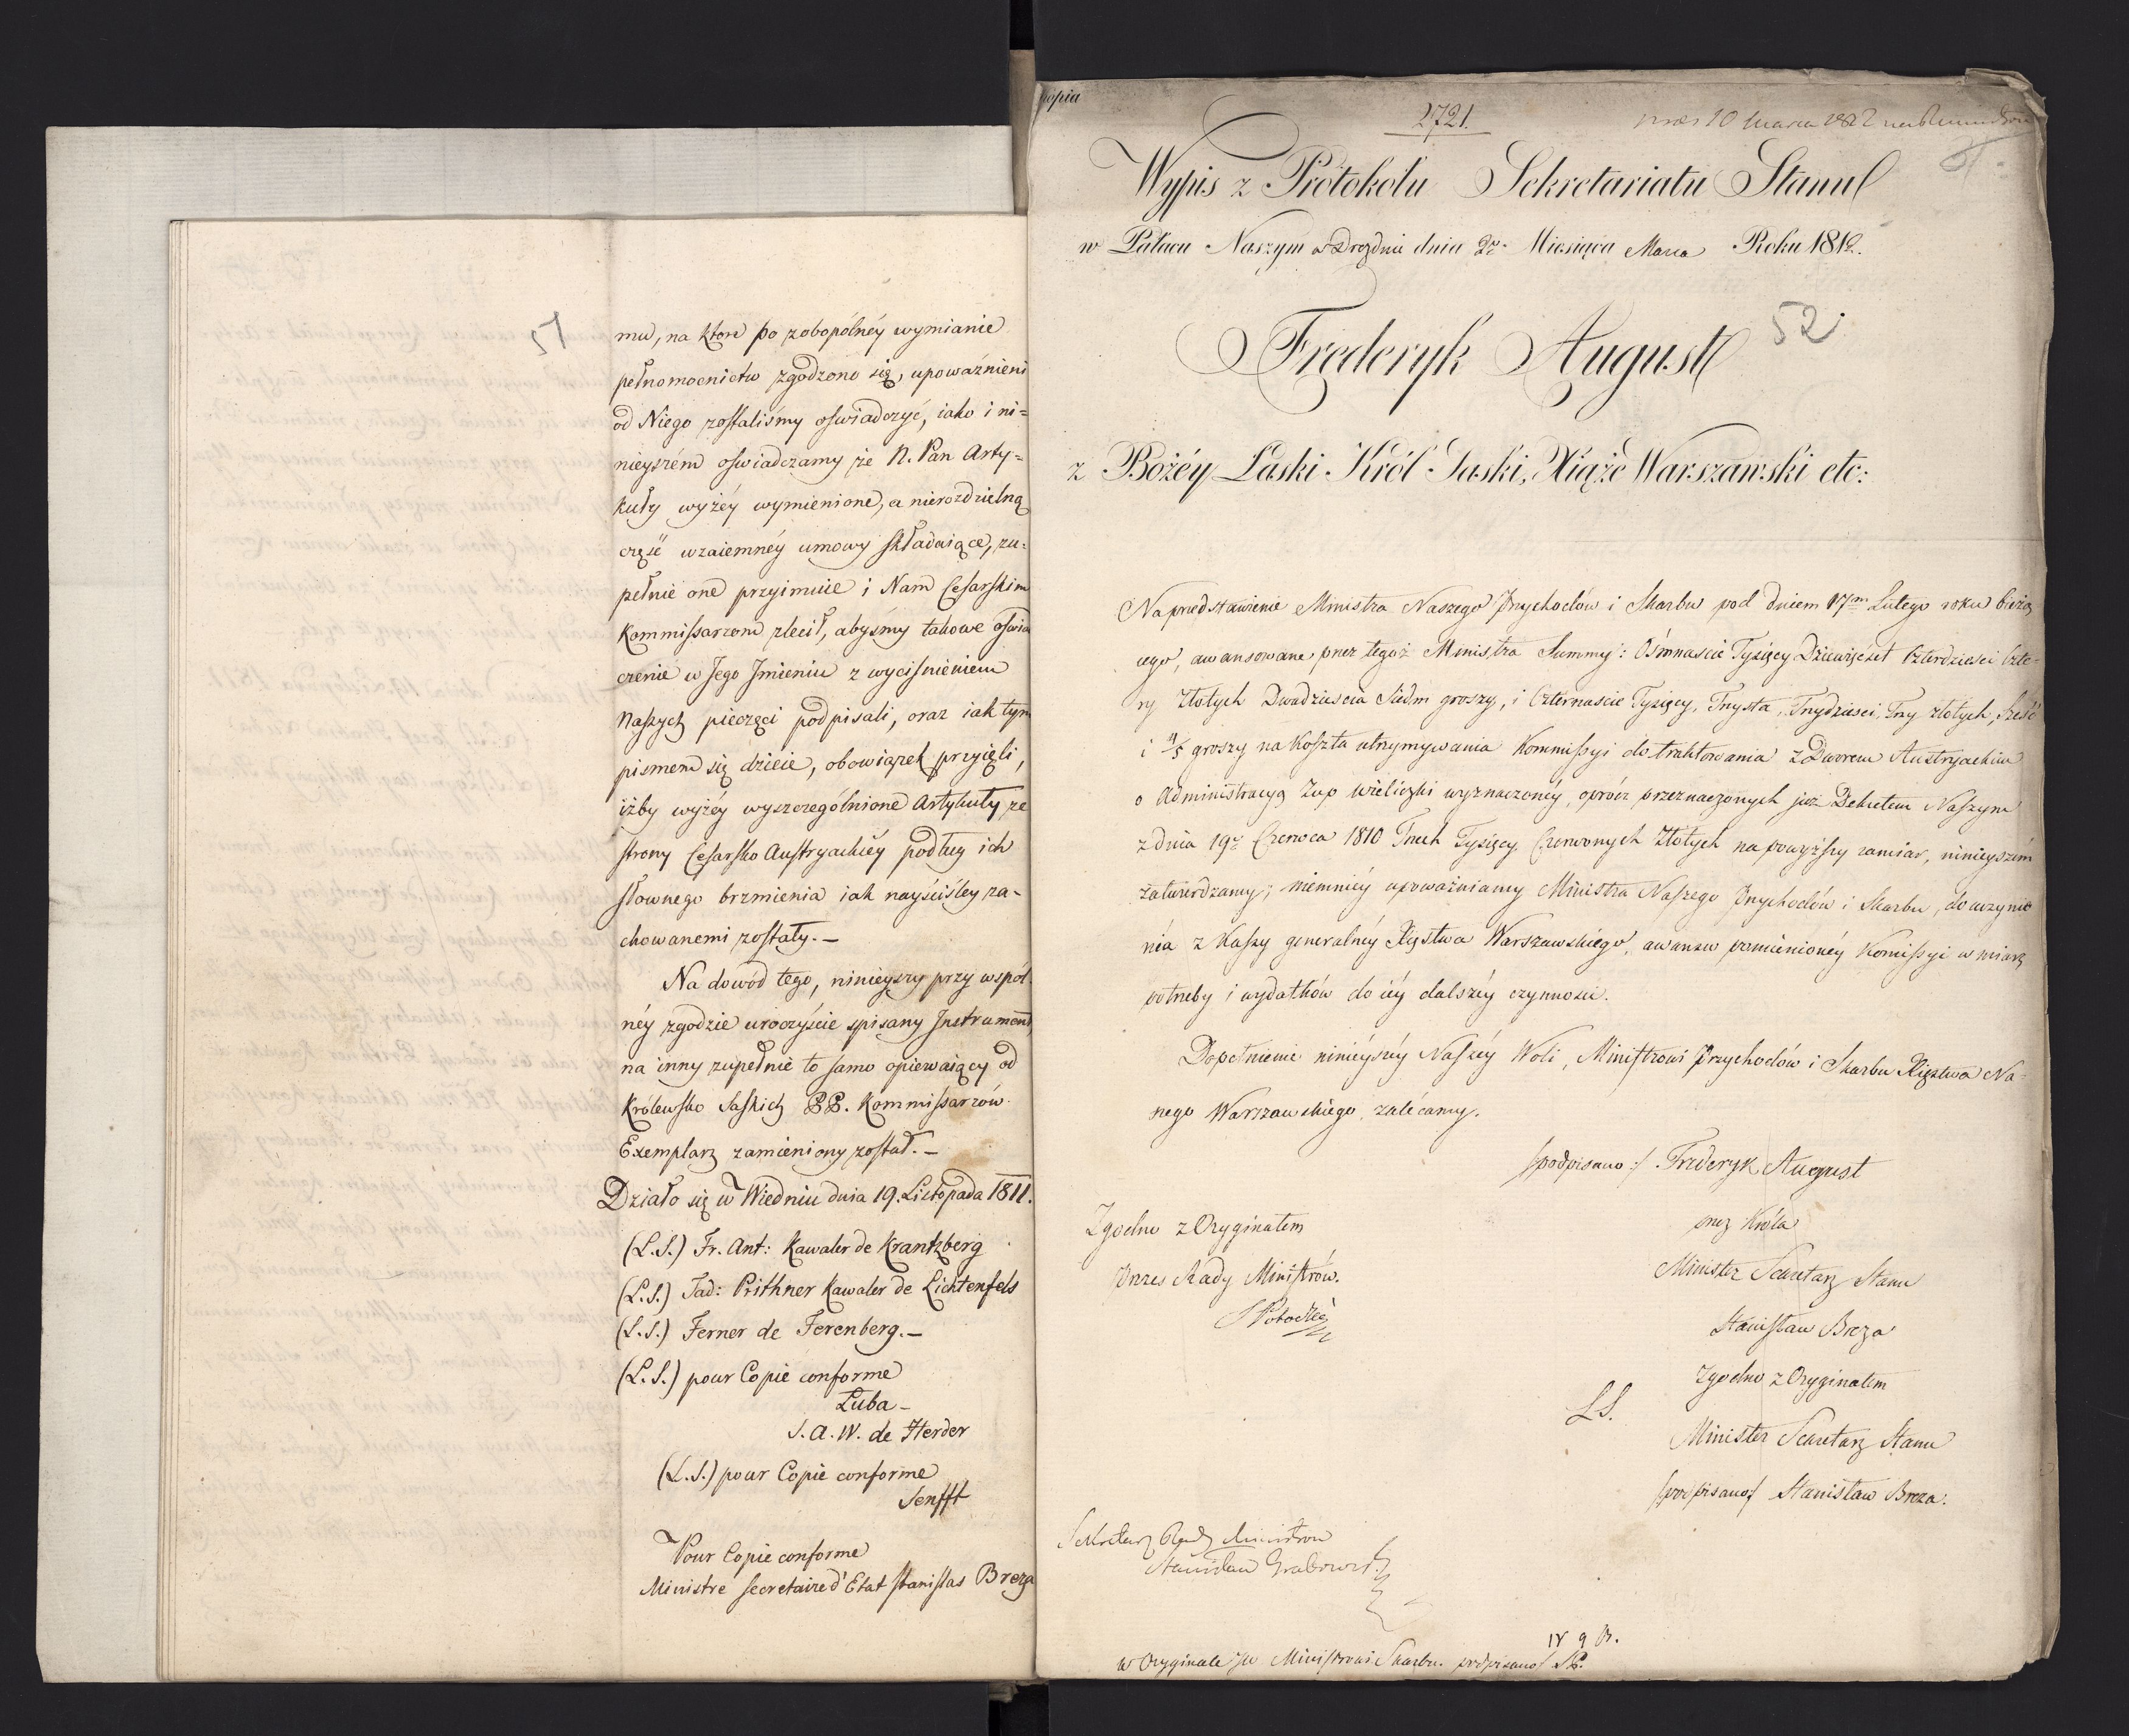 51
mu, na ktore po zobopólnéy wymianie
pełnomocnictw zgodzono się, upoważnieni
od Niego zostaliśmy oswiadczyć, iako i ni=
nieyszém oswiadczamy że N. Pan Arty=
kuły wyżéy wymienione, a nierozdzielną
część wzaiemnéy umowy składaiące, zu=
pełnie one przyimuie i Nam Cesarskim
Kommissarzom zlecił, abyśmy takowe oświa
czenie w Jego Jmieniu z wyciśnieniem
Naszych pieczęci podpisali, oraz iak tym
pismem się dzieie, obowiązek przyięli,
iżby wyżéy wyszczególnione Artykuły ze
strony Cesarsko Austryackiéy podług ich
słownego brzmienia iak nayściśley za-
chowanemi zostały. —
Na dowód tego, ninieyszy przy wspól
néy zgodzie uroczyście spisany Jnstrument
na inny zupełnie to samo opiewaiący od
Królewsko Saskich PP. Kommissarzów
Exemplarz zamieniony został. —
Działo się w Wiedniu dnia 19. Listopada 1811.
(L.S.) Fr. Ant: Kawaler de Krantzberg
(L.S.) Tad: Prithner Kawaler de Lichtenfels
(L.S.) Ferner de Ferenberg. —
(L.S.) pour Copie conforme
Luba —
S. A. W. de Herder
(L.S.) pour Copie conforme
Senfft
Pour Copie conforme
Ministre secretaire d'Etat Stanislas Breza
Kopia
2721.
10 Marca 1812
Wypis z Protokołu Sekretariatu Stanu
w Pałacu Naszym w Dreznie dnia 2go Miesiąca Marca Roku 1812.
52
Frederyk August
z Bożéy Łaski Król Saski, Xiąże Warszawski etc:
Na przedstawienie Ministra Naszego Przychodów i Skarbu pod dniem 17m Lutego roku bieżą
cego, awansowane przez tegoż Ministra Summy: Ośmnaście Tysięcy Dziewięćset Czterdzieści Czte=
ry Złotych Dwadzieścia Siedm groszy, i Czternaście Tysięcy, Trzysta, Trzydzieści, Trzy złotych, Sześć
i 4/5 groszy na Koszta utrzymywania Kommissyi do traktowania z Dworem Austryackim
o Administracyą Żup Wieliczki wyznaczonéy, oprócz przeznaczonych już Dekretem Naszym
z dnia 19go Czerwca 1810 Trzech Tysięcy Czerwonych Złotych na powyższy zamiar, ninieyszém
zatwierdzamy; niemniéy upoważniamy Ministra Naszego Przychodów i Skarbu, do uczynie
nia z Kassy generalnéy Xięstwa Warszawskiego, awansu pomienionéy Komissyi w miarę
potrzeby i wydatków do iéy dalszéy czynności.
Dopełnienie ninieyszéy Naszéy Woli, Ministrowi Przychodów i Skarbu Xięztwa Na=
szego Warszawskiego zalecamy.
/podpisano:/ Frederyk August
Zgodno z Oryginałem
przez Króla
Prezes Rady Ministrów.
Minister Sekretarz Stanu
SPotocki
Stanisław Breza
Zgodno z Oryginałem
L.S.
Minister Sekretarz Stanu
/podpisano/ Stanisław Breza.
Sekretarz Rady Ministrow
Stanisław Grabowski
w Oryginale JW Ministrowi Skarbu. podpisano